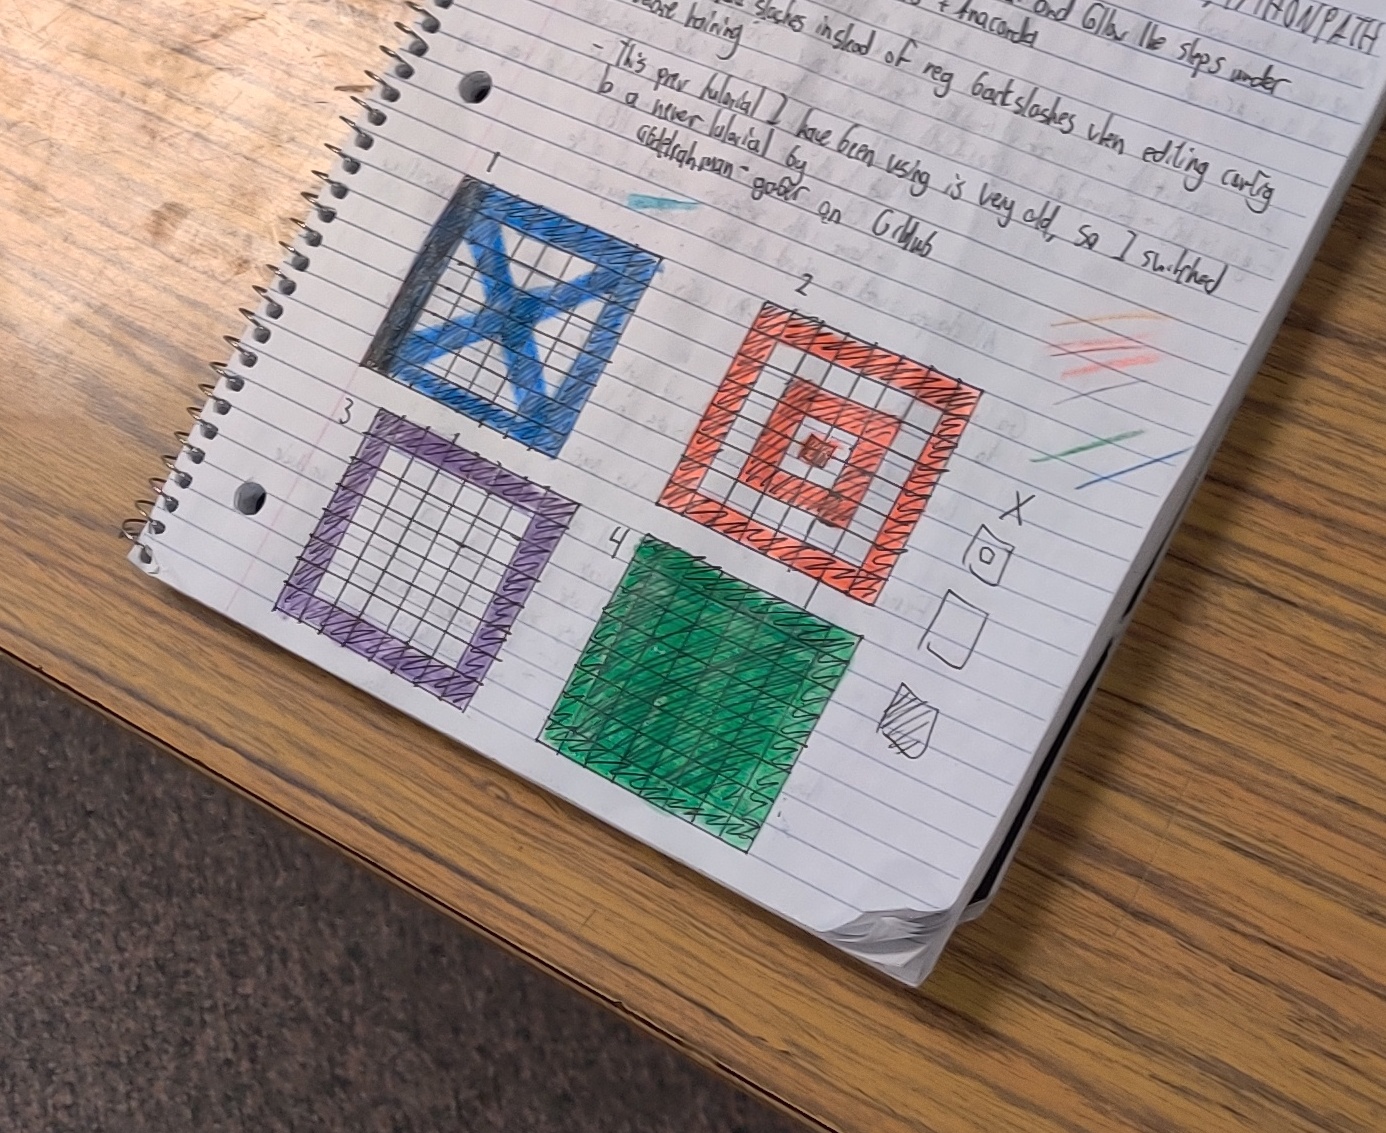 PYTHONPATH
and follow the steps under
+ Anaconda
slashes instead of reg backslashes when editing config
before training
- This prev tutorial I have been using is very old, so I switched
to a newer tutorial by
abdelrahman-gaber on GitHub
1
2
3
4
X